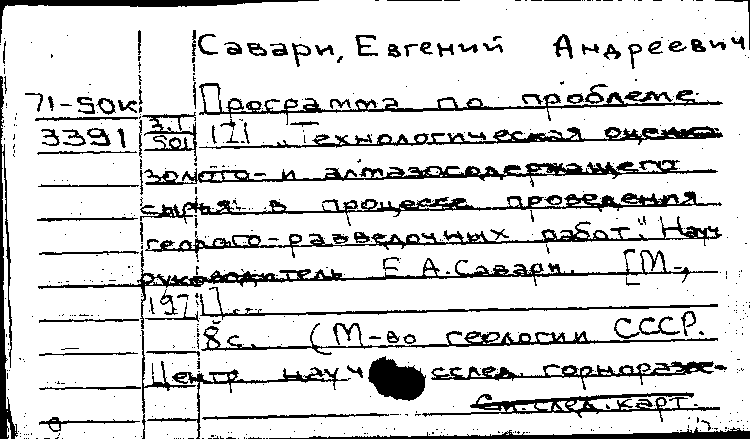 Савари, Евгений Андреевич
71-50к Программа по проблеме
3391 З.Т 121 „Технологическая оценка
501 золото- и алмазосодержащего
сырья в процессе проведения
геолого-разведочных работ". Науч
руководитель Е.А.Савари. [М.,
1971]...
8с. (М-во геологии СССР.
Центр науч сслед. горноразве-
См.след.карт